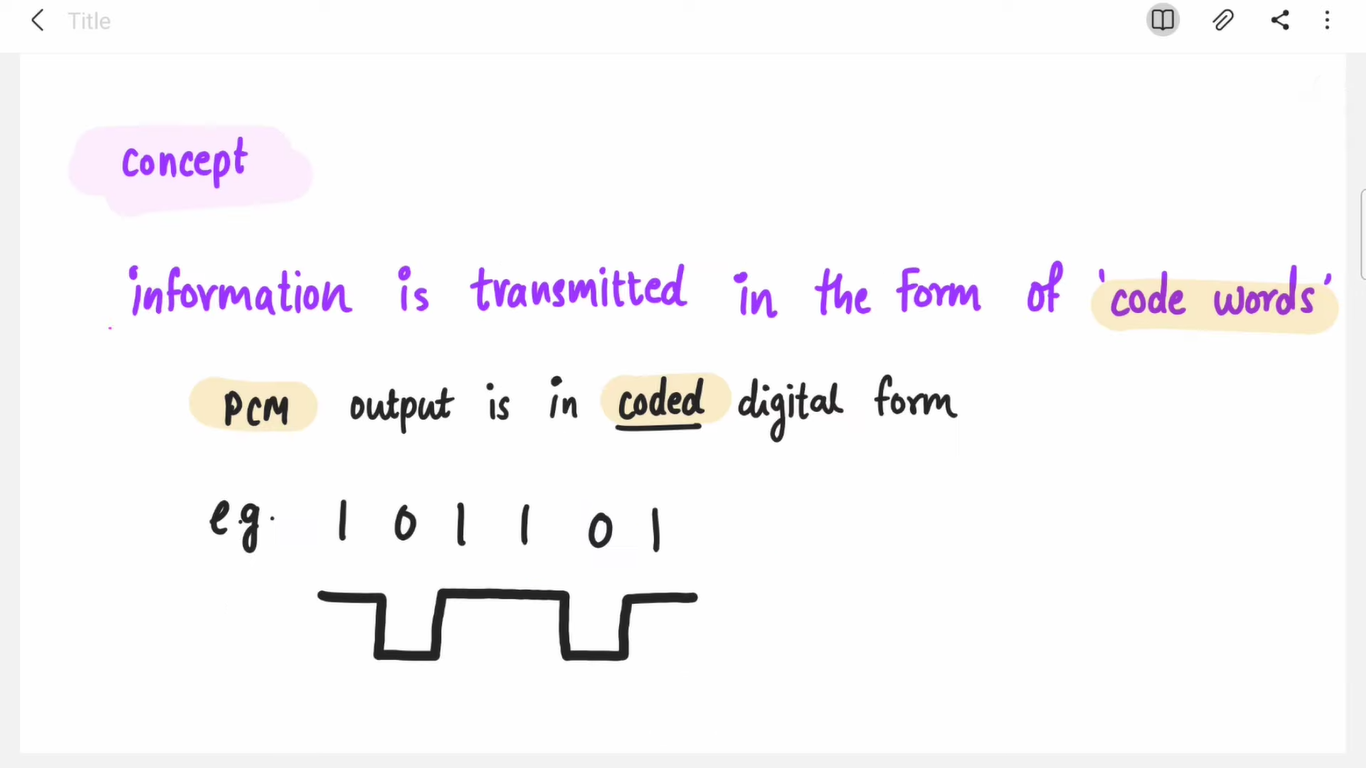 Title
Concept
information is transmitted in the form of 'code words'
PCM output is in coded digital form
e.g. 1 0 1 1 0 1